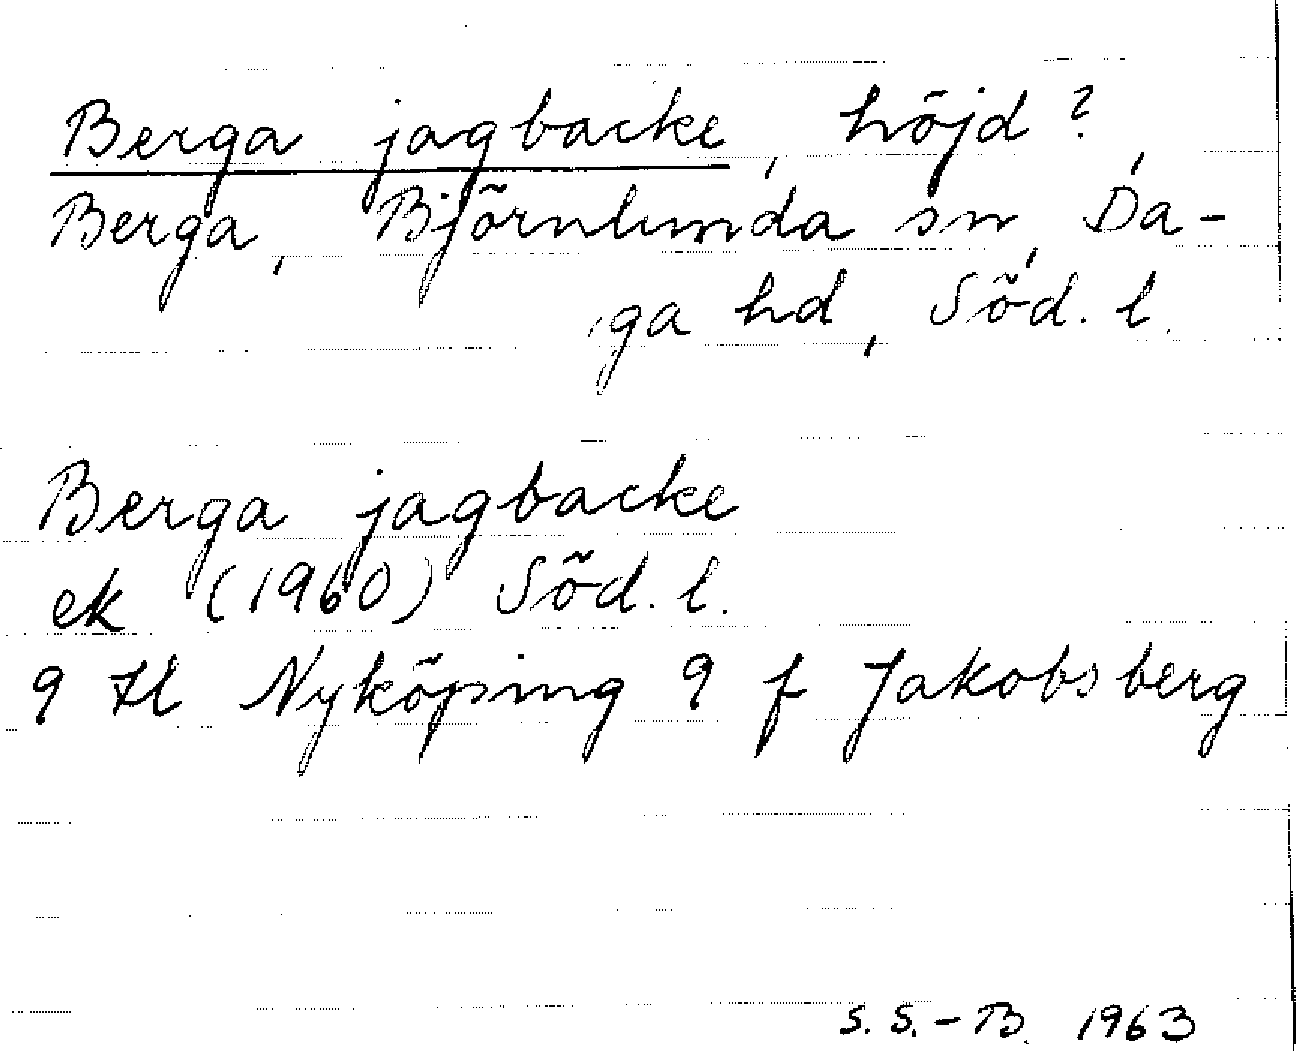 Berga jagbacke, höjd?,
Berga, Björnlunda sn, Da-
ga hd, Söd. l.
Berga jagbacke
ek (1960) Söd. l.
9 H Nyköping 9 f Jakobsberg
S. S.-B. 1963